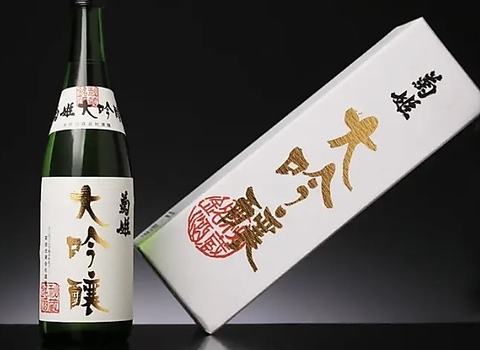 菊姫大吟醸
菊姫
大吟醸
菊姫
大吟醸